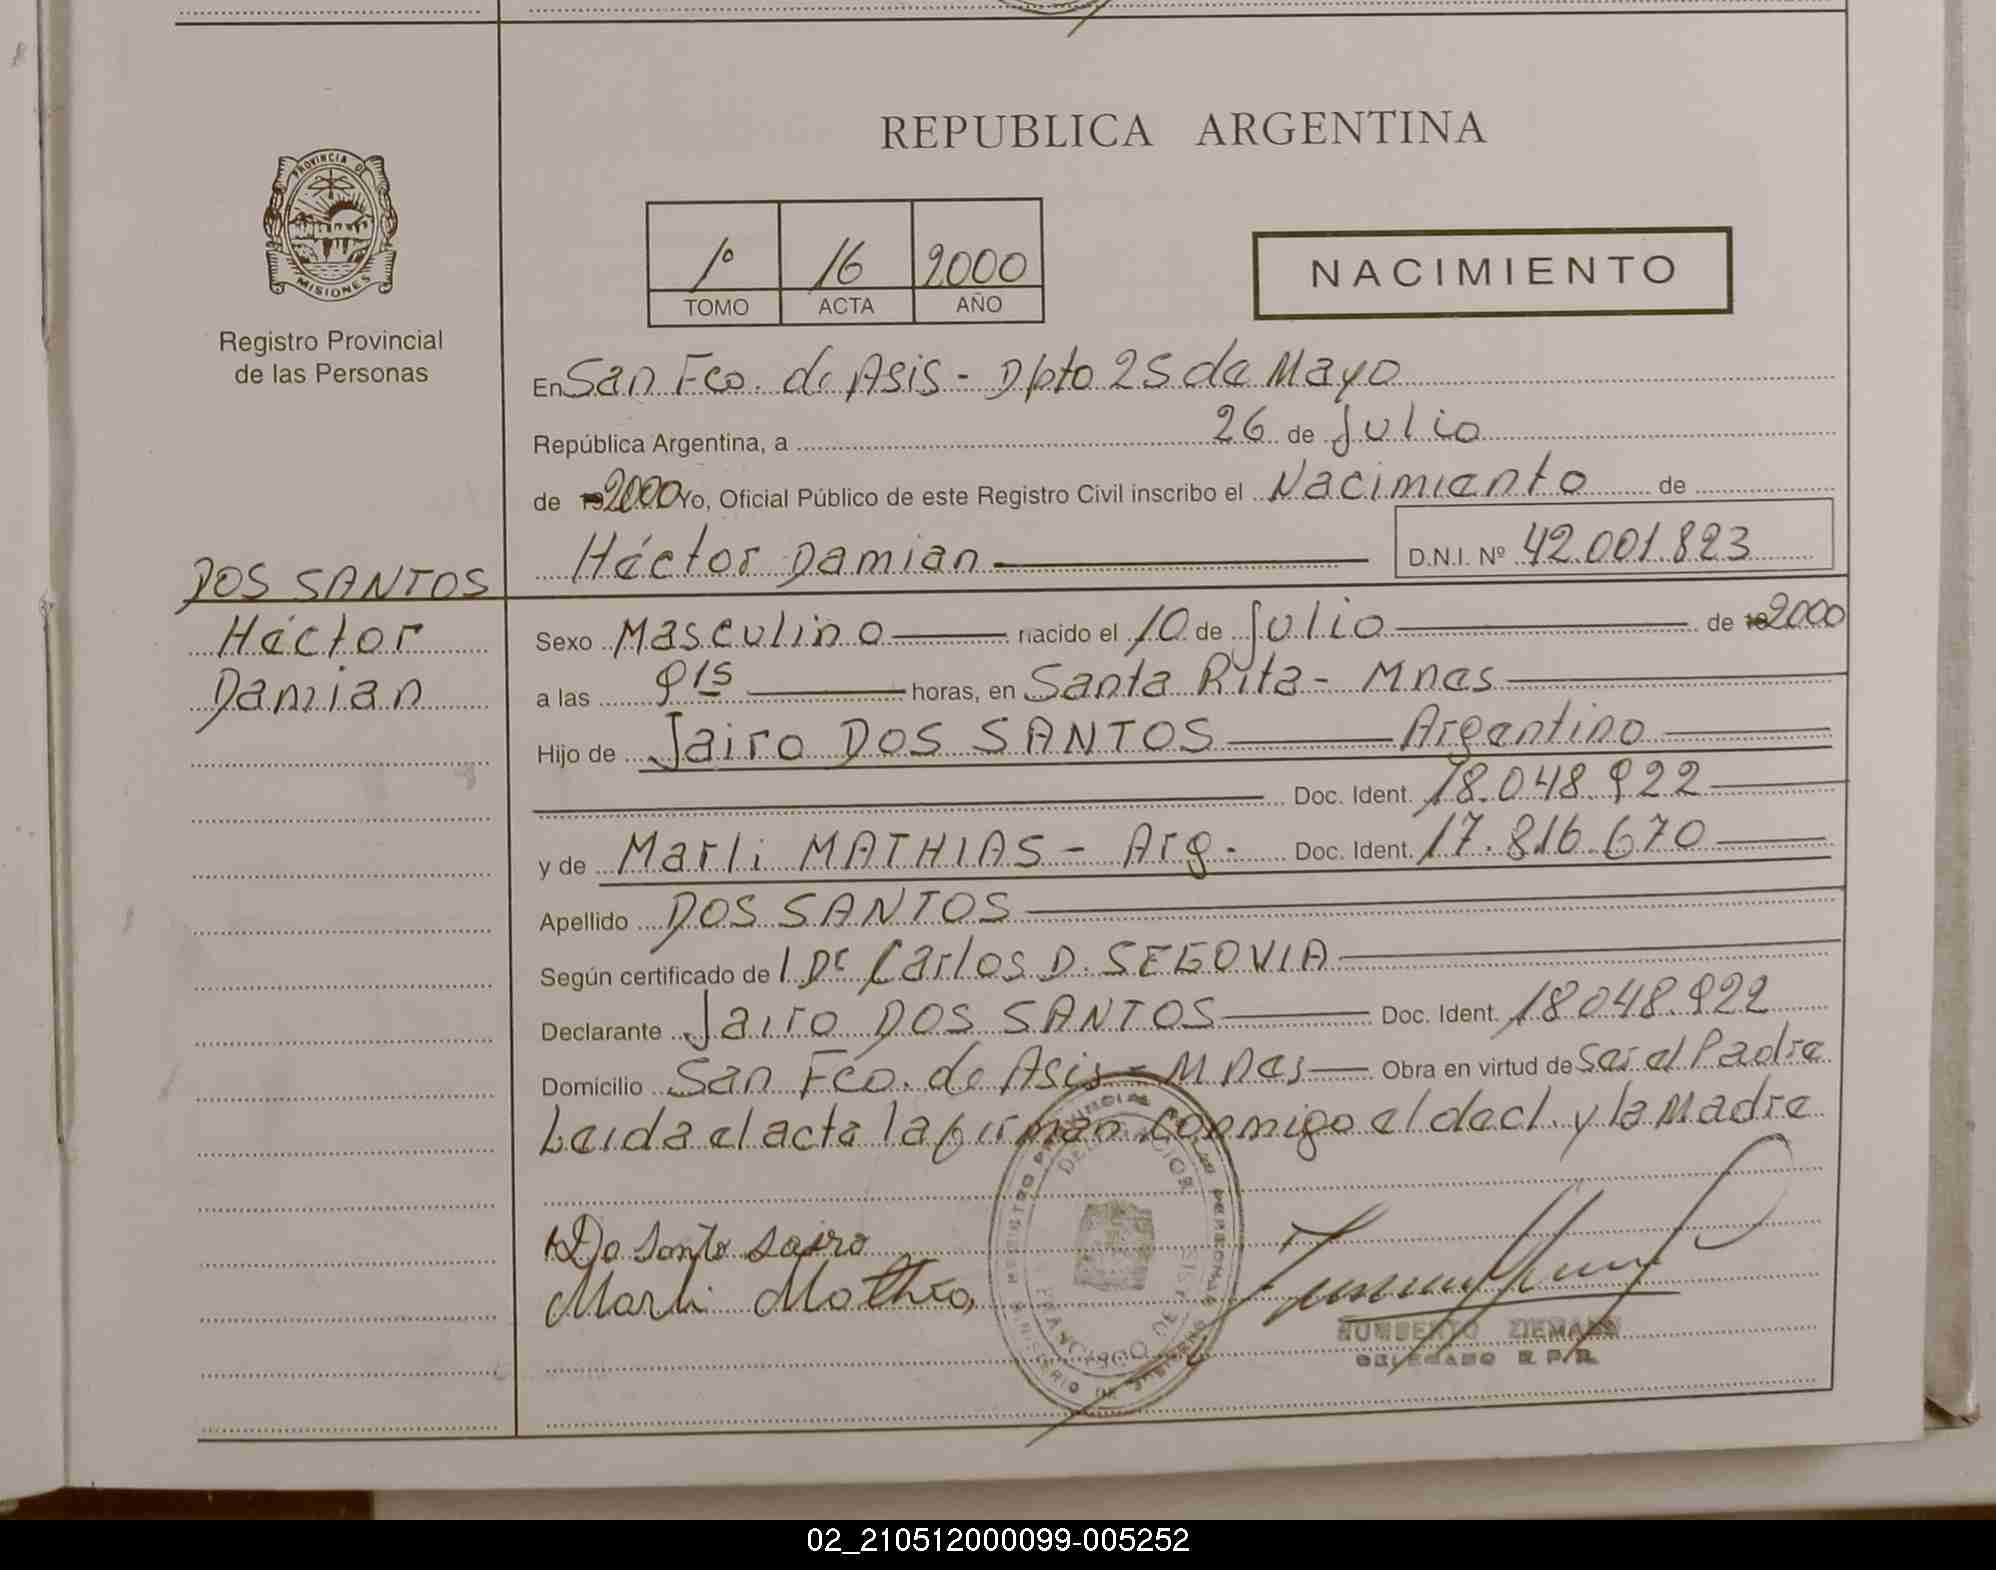 PROVINCIA DE
MISIONES
Registro Provincial
de las Personas
DOS SANTOS
Héctor
Damian
REPUBLICA ARGENTINA
1º 16 2000
TOMO ACTA AÑO
NACIMIENTO
En San Fco. de Asis - Dpto 25 de Mayo
República Argentina, a 26 de Julio
de 2000 Yo, Oficial Público de este Registro Civil inscribo el Nacimiento de
Héctor Damian D.N.I. Nº 42.001.823
Sexo Masculino nacido el 10 de Julio de 2000
a las 9 15 horas, en Santa Rita - Mnes
Hijo de Jairo DOS SANTOS Argentino
Doc. Ident. 18.048.922
y de Marli MATHIAS - Arg. Doc. Ident. 17.816.670
Apellido DOS SANTOS
Según certificado de Dr Carlos D. SEGOVIA
Declarante Jairo DOS SANTOS Doc. Ident. 18048.922
Domicilio San Fco. de Asis - Mnes Obra en virtud de Ser el Padre
Leida el acta la firman conmigo el decl. y la Madre
Do Santo Jairo
Marli Mathia
HUMBERTO ZIEMANN
DELEGADO R.P.P.
02_210512000099-005252